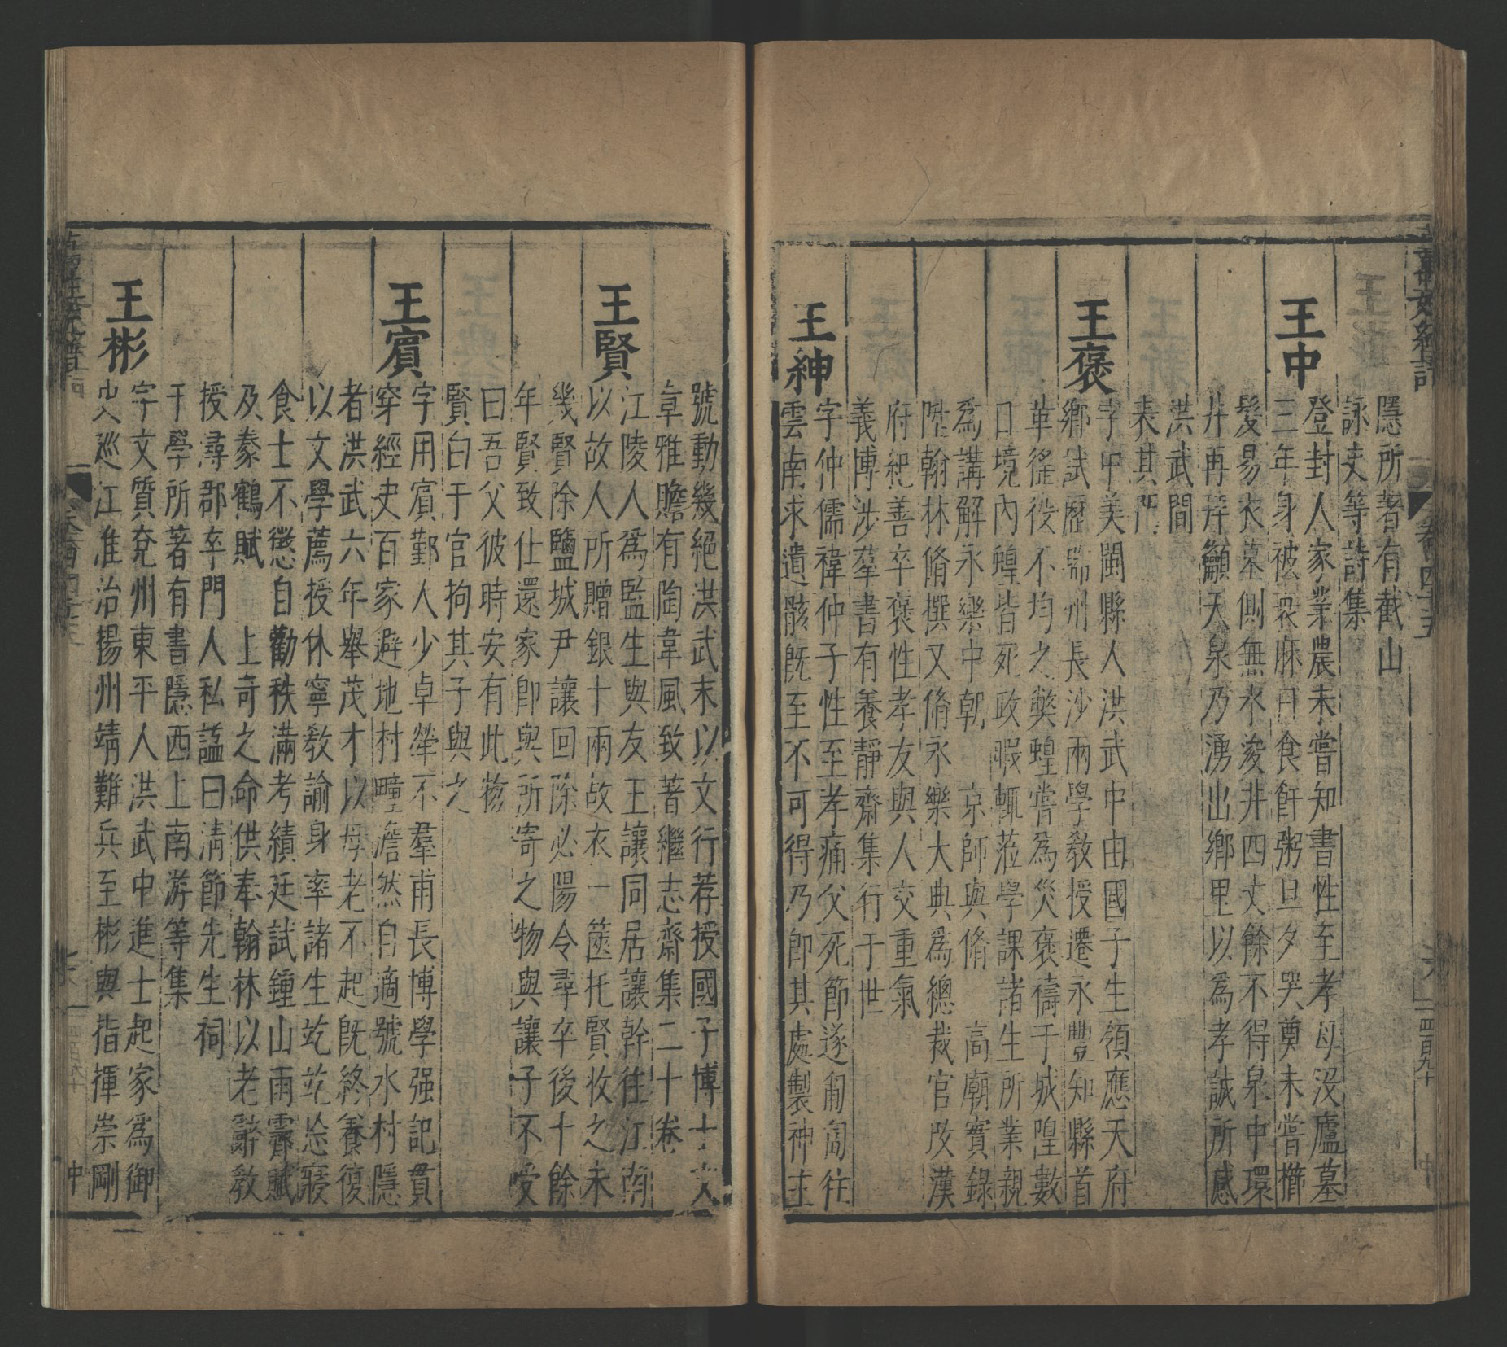 隱所著有截山
詠史等詩集
王中
登封人家業農未嘗知書性至孝母沒廬墓
三年身被衰麻日食飦粥旦夕哭奠未嘗櫛
髮易衣墓側無水浚井四丈餘不得泉中環
井再拜籲天泉乃湧出鄉里以為孝誠所感
洪武間
表其門
王褒
字中美閩縣人洪武中由國子生領應天府
鄉試歷瑞州長沙兩學敎授遷永豐知縣首
革徭役不均之獘蝗嘗為災褒禱于城隍數
日境內蝗皆死政暇輒蒞學課諸生所業親
為講解永樂中朝 京師與脩 高廟實錄
陞翰林脩撰又脩永樂大典為總裁官改漢
府紀善卒褒性孝友與人交重氣
義博涉羣書有養靜齋集行于世
王紳
字仲儒禕仲子性至孝痛父死節遂匍匐往
雲南求遺骸旣至不可得乃卽其處製神主
號動幾絕洪武末以文行荐授國子博士文
章雅贍有陶韋風致著繼志齋集二十卷
王賢
江陵人為監生與友王讓同居讓幹往江南
以故人所贈銀十兩故衣一篋托賢收之未
幾賢除鹽城尹讓回除必陽令尋卒後十餘
年賢致仕還家卽與所寄之物與讓子不受
曰吾父彼時安有此物
賢白于官拘其子與之
王賓
字用賓鄞人少卓犖不羣甫長博學强記貫
穿經史百家避地村疃澹然自適號水村隱
者洪武六年舉茂才以母老不起旣終養復
以文學薦授休寧敎諭身率諸生竝竝忘寢
食士不懲自勸秩滿考績廷試鍾山雨霽賦
及泰鶴賦 上奇之命供奉翰林以老辭敎
授尋郡卒門人私謚曰清節先生祠
于學所著有書隱西上南游等集
王彬
字文質兗州東平人洪武中進士起家為御
史巡江淮治揚州靖難兵至彬與指揮崇剛